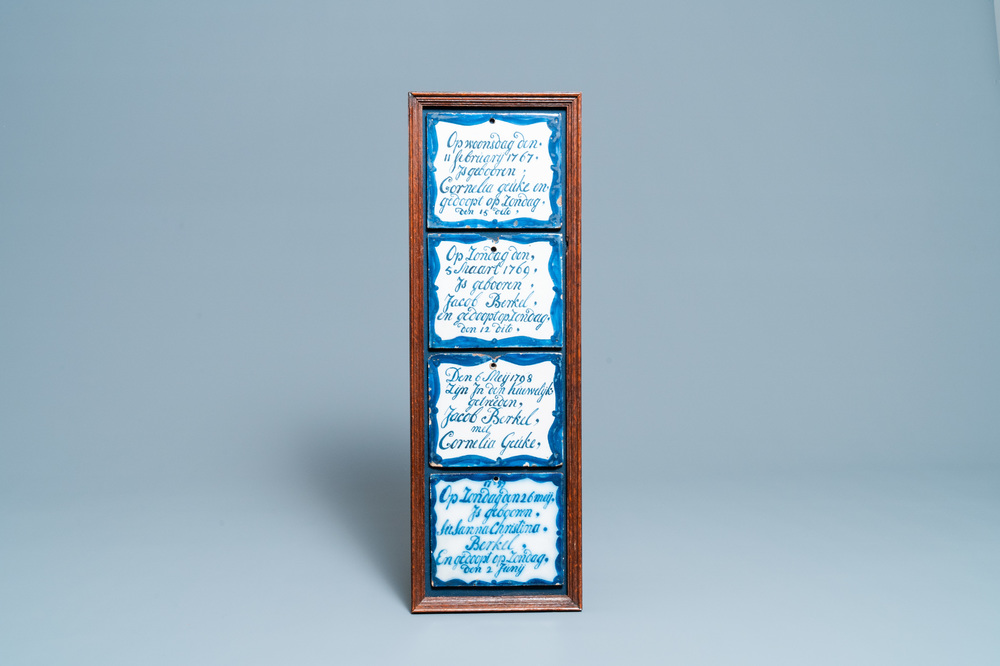 Op woensdag den.
11 februarij 1767.
Js gebooren,
Cornelia geuke en
gedoopt op Zondag.
den 15 dito,
Op Zondag den,
5 Maart 1769,
Js gebooren,
Jacob Berkel,
en gedoopt op Zondag.
den 12 dito,
Den 6 Meij 1798
Zyn Jn den huwelijk
getreeden,
Jacob Berkel,
met
Cornelia Geuke,
Op Zondag den 26 meij.
Js gebooren,
Susanna Christina.
Berkel,
En gedoopt op Zondag.
den 2 Junij